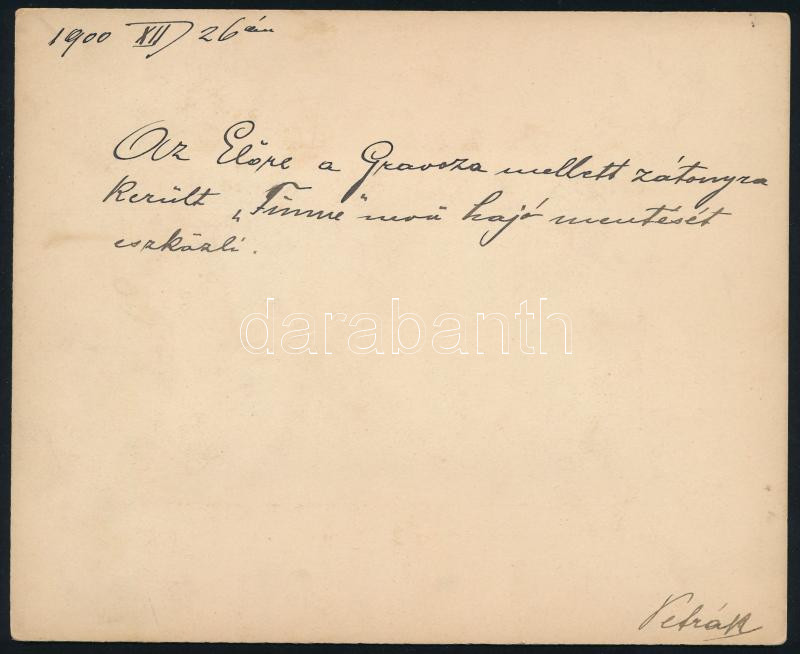 1900 XII 26 án
Az Előre a Gravosa mellett zátonyra
került „Fiume" nevű hajó mentését
eszközli.
darabanth
Petrák